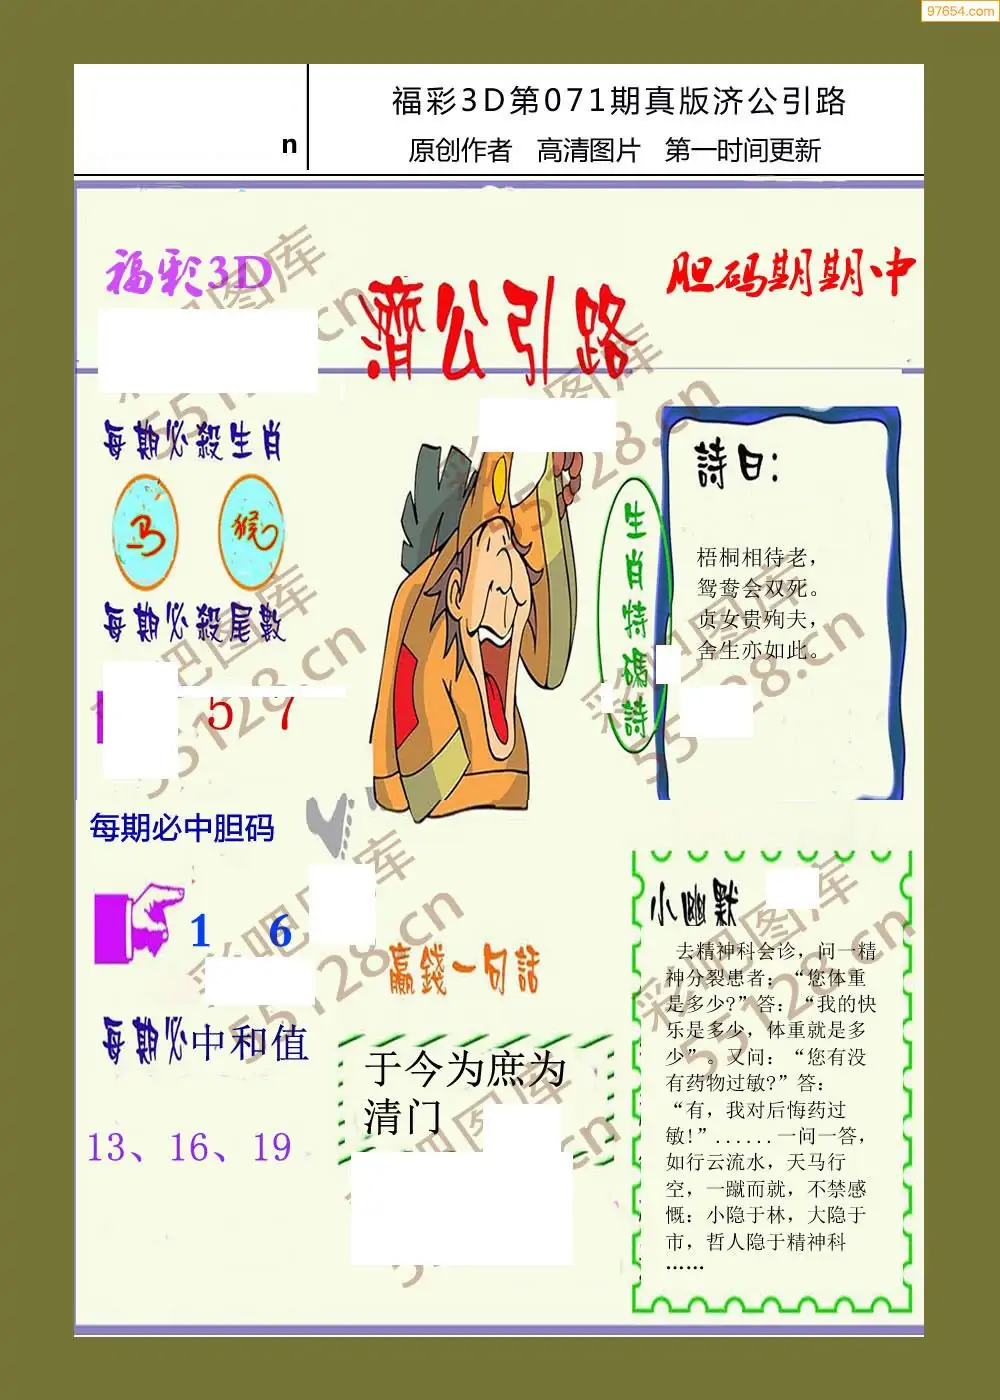 97654.com
n
福彩3D第071期真版济公引路
原创作者 高清图片 第一时间更新
福彩3D
胆码期期中
濟公引路
每期必殺生肖
马 猴
每期必殺尾數
5 7
每期必中胆码
1 6
每期必中和值
13、16、19
生肖特碼詩
詩曰：
梧桐相待老，
鸳鸯会双死。
贞女贵殉夫，
舍生亦如此。
贏錢一句話
于今为庶为
清门
小幽默
去精神科会诊，问一精
神分裂患者：“您体重
是多少?”答：“我的快
乐是多少，体重就是多
少”。又问：“您有没
有药物过敏?”答：
“有，我对后悔药过
敏!”......一问一答，
如行云流水，天马行
空，一蹴而就，不禁感
慨：小隐于林，大隐于
市，哲人隐于精神科
……
彩吧图库
55128.cn
彩吧图库
55128.cn
彩吧图库
55128.cn
彩吧图库
55128.cn
彩吧图库
55128.cn
彩吧图库
55128.cn